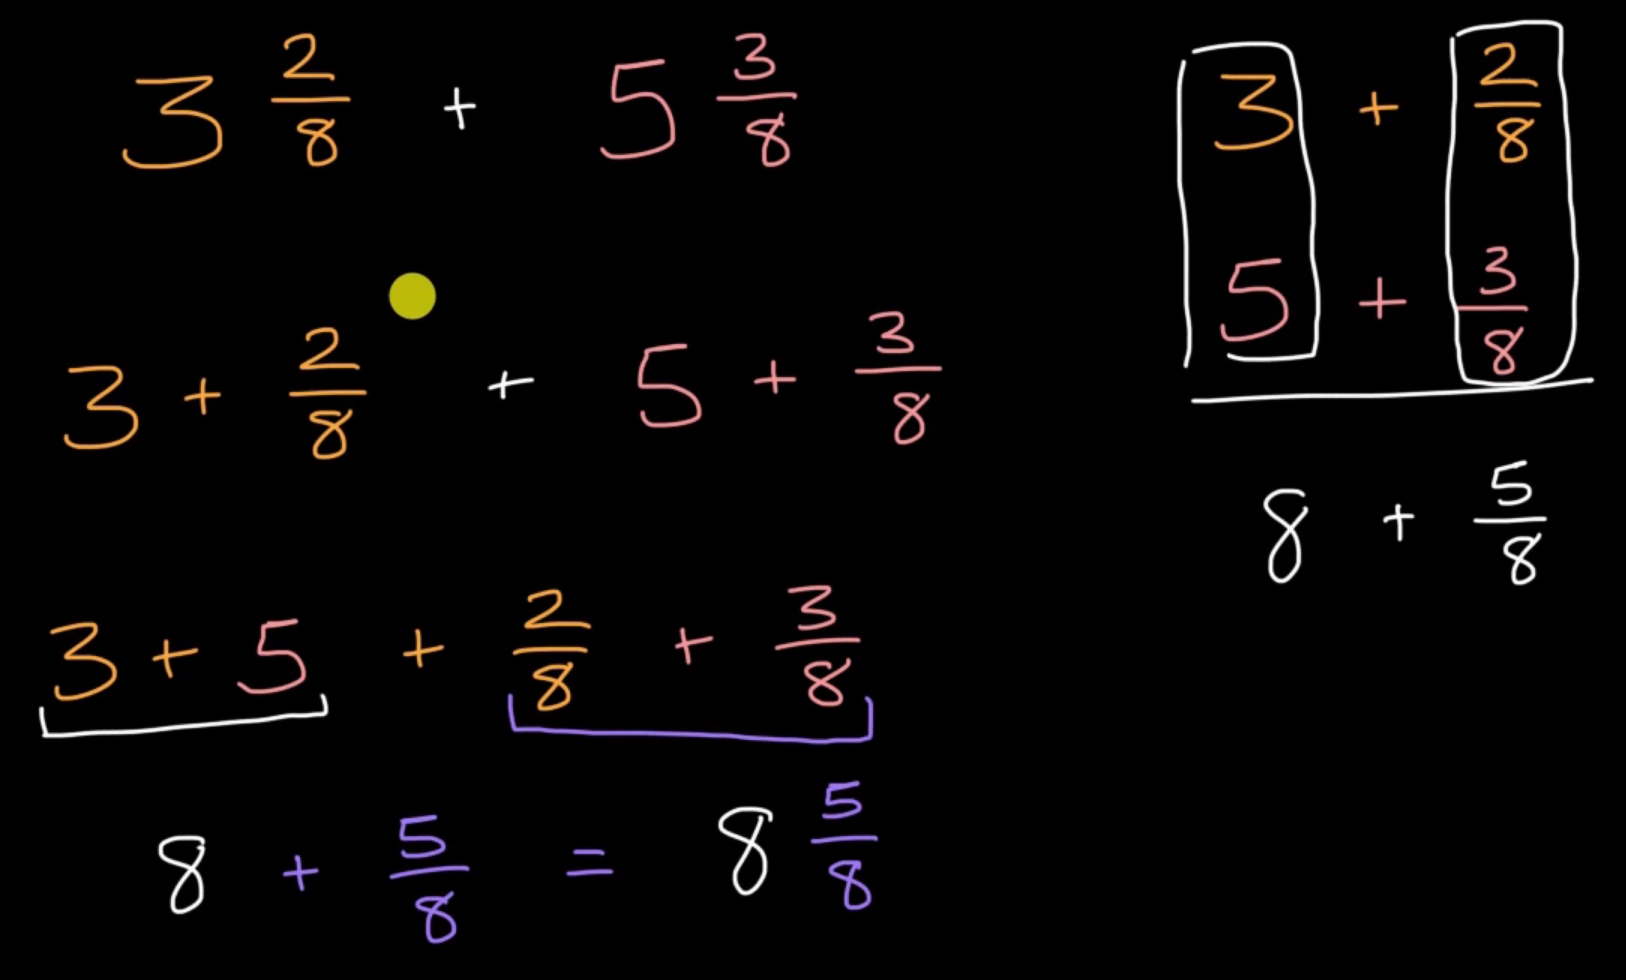 3 2/8 + 5 3/8
3 + 2/8 + 5 + 3/8
3 + 5 + 2/8 + 3/8
8 + 5/8 = 8 5/8
3 + 2/8
5 + 3/8
8 + 5/8